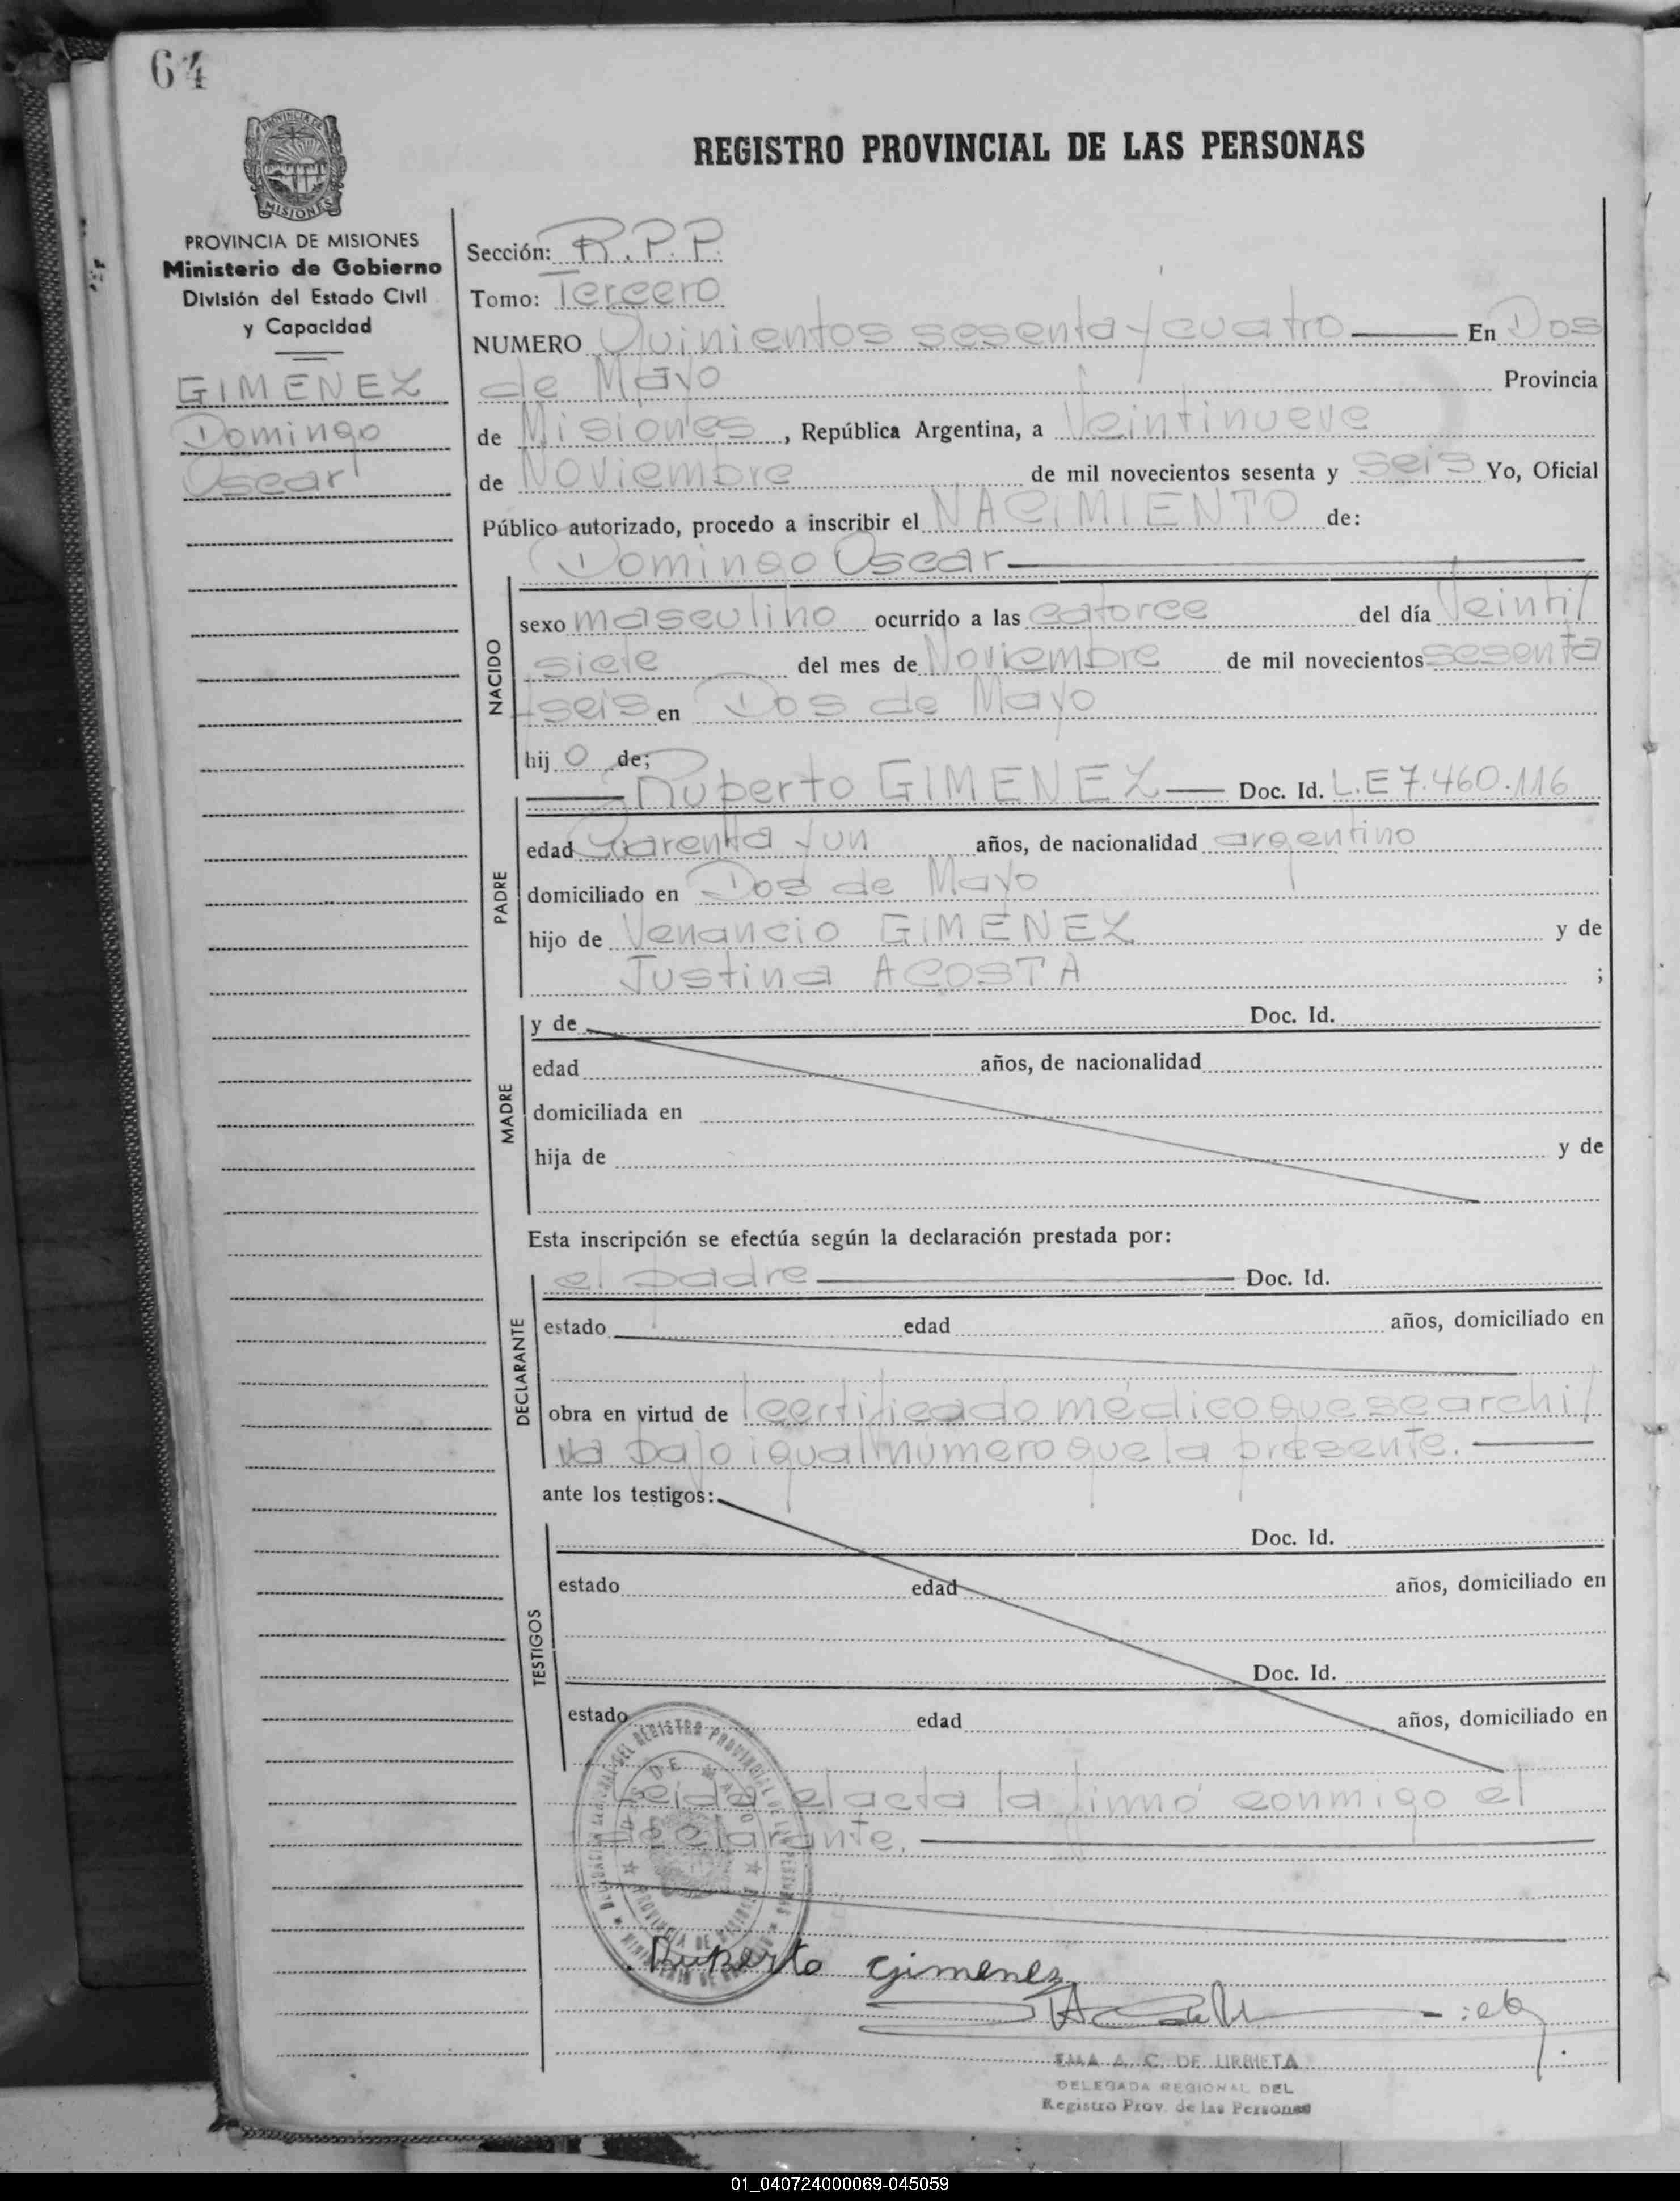 64
PROVINCIA DE
MISIONES
REGISTRO PROVINCIAL DE LAS PERSONAS
PROVINCIA DE MISIONES
Ministerio de Gobierno
División del Estado Civil
y Capacidad
GIMENEZ
Domingo
Oscar
Sección: R.P.P.
Tomo: Tercero
NUMERO Quinientos sesenta y cuatro En Dos
de Mayo Provincia
de Misiones, República Argentina, a Veintinueve
de Noviembre de mil novecientos sesenta y seis Yo, Oficial
Público autorizado, procedo a inscribir el NACIMIENTO de:
Domingo Oscar
NACIDO
sexo masculino ocurrido a las catorce del día Veinti/
siete del mes de Noviembre de mil novecientos sesenta
y seis en Dos de Mayo
hij o de;
PADRE
Ruperto GIMENEZ Doc. Id. L.E 7.460.116
edad Cuarenta y un años, de nacionalidad argentino
domiciliado en Dos de Mayo
hijo de Venancio GIMENEZ y de
Justina ACOSTA ;
MADRE
y de Doc. Id.
edad años, de nacionalidad
domiciliada en
hija de y de
Esta inscripción se efectúa según la declaración prestada por:
DECLARANTE
el padre Doc. Id.
estado edad años, domiciliado en
obra en virtud de certificado médico que se archi/
va bajo igual número que la presente.
ante los testigos:
TESTIGOS
Doc. Id.
estado edad años, domiciliado en
Doc. Id.
estado edad años, domiciliado en
Leida el acta la firmó conmigo el
declarante.
Ruperto Gimenez
EMA A. C. DE URBIETA
DELEGADA REGIONAL DEL
Registro Prov. de las Personas
01_040724000069-045059